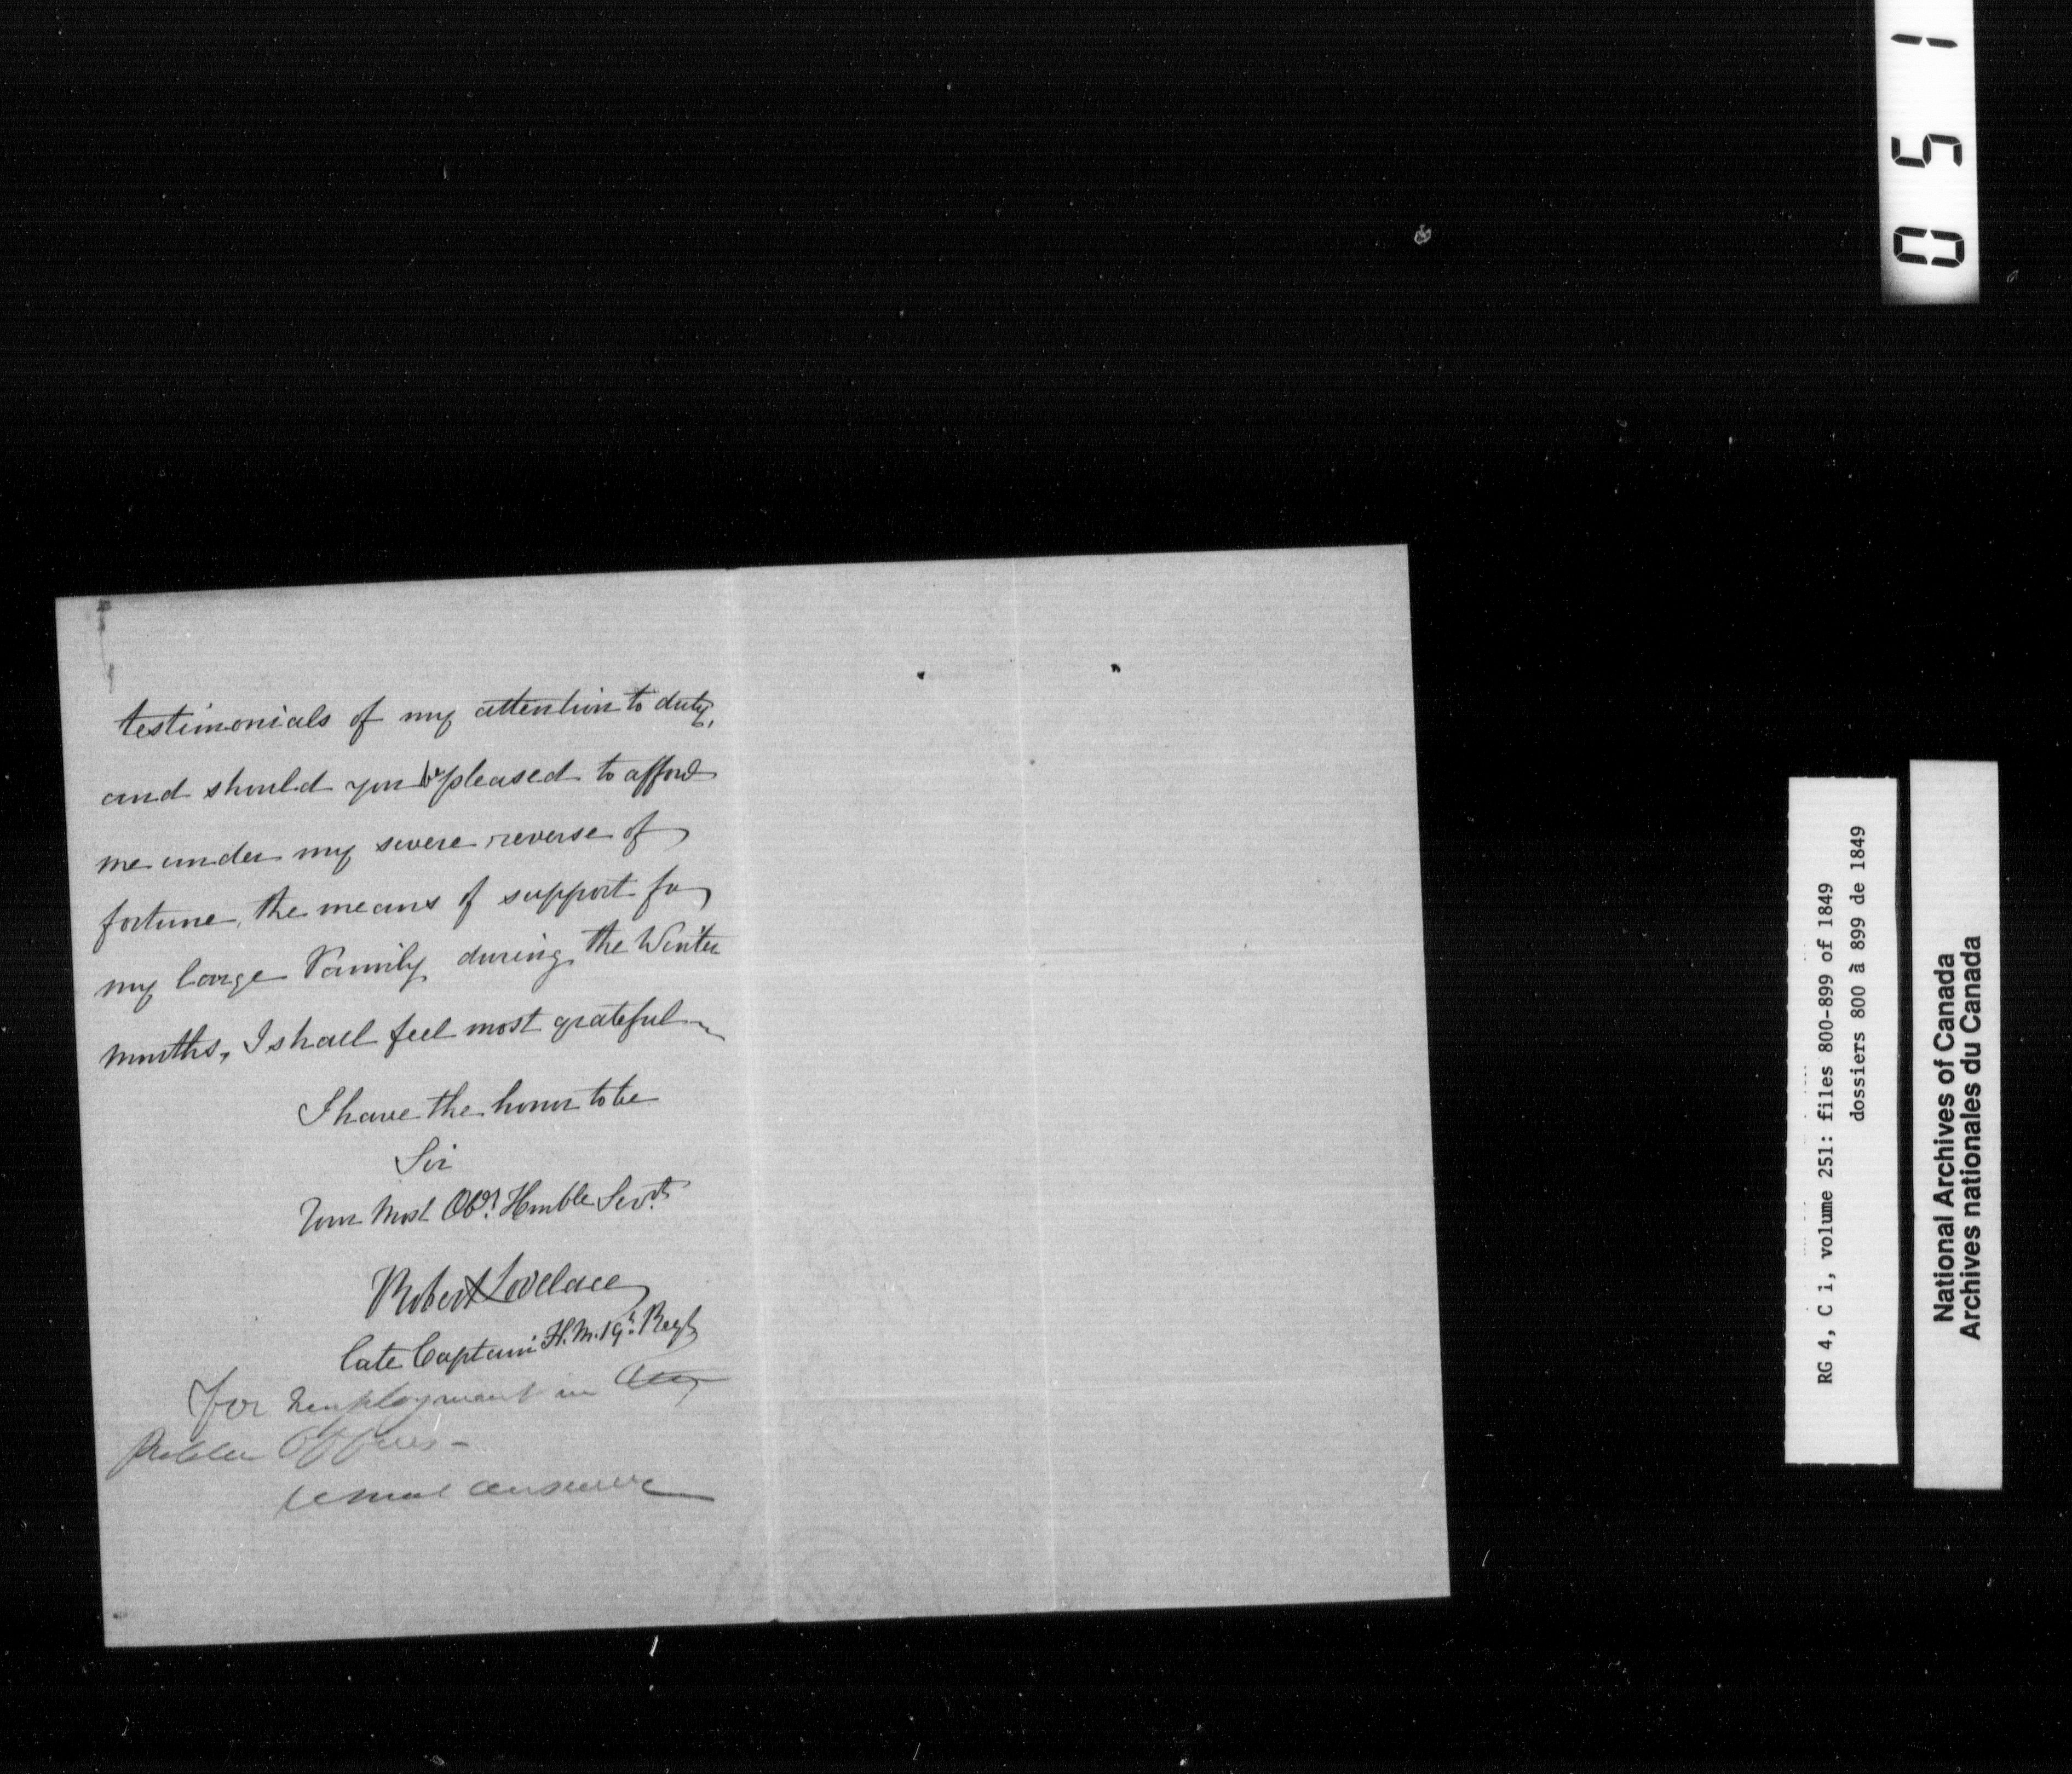 testimonials of my attention to duty,
and should you be pleased to afford
me under my severe reverse of
fortune, the means of support for
my large Family during the Winter
months, I shall feel most grateful
I have the honor to be
Sir
Your Most Obt. Humble Servt.
Robert Lovelace
late Captain H.M. 19th. Regt
for Employment in
Public Offices -
usual answer
0 5 1
RG 4, C 1, volume 251: files 800-899 of 1849
dossiers 800 à 899 de 1849
National Archives of Canada
Archives nationales du Canada